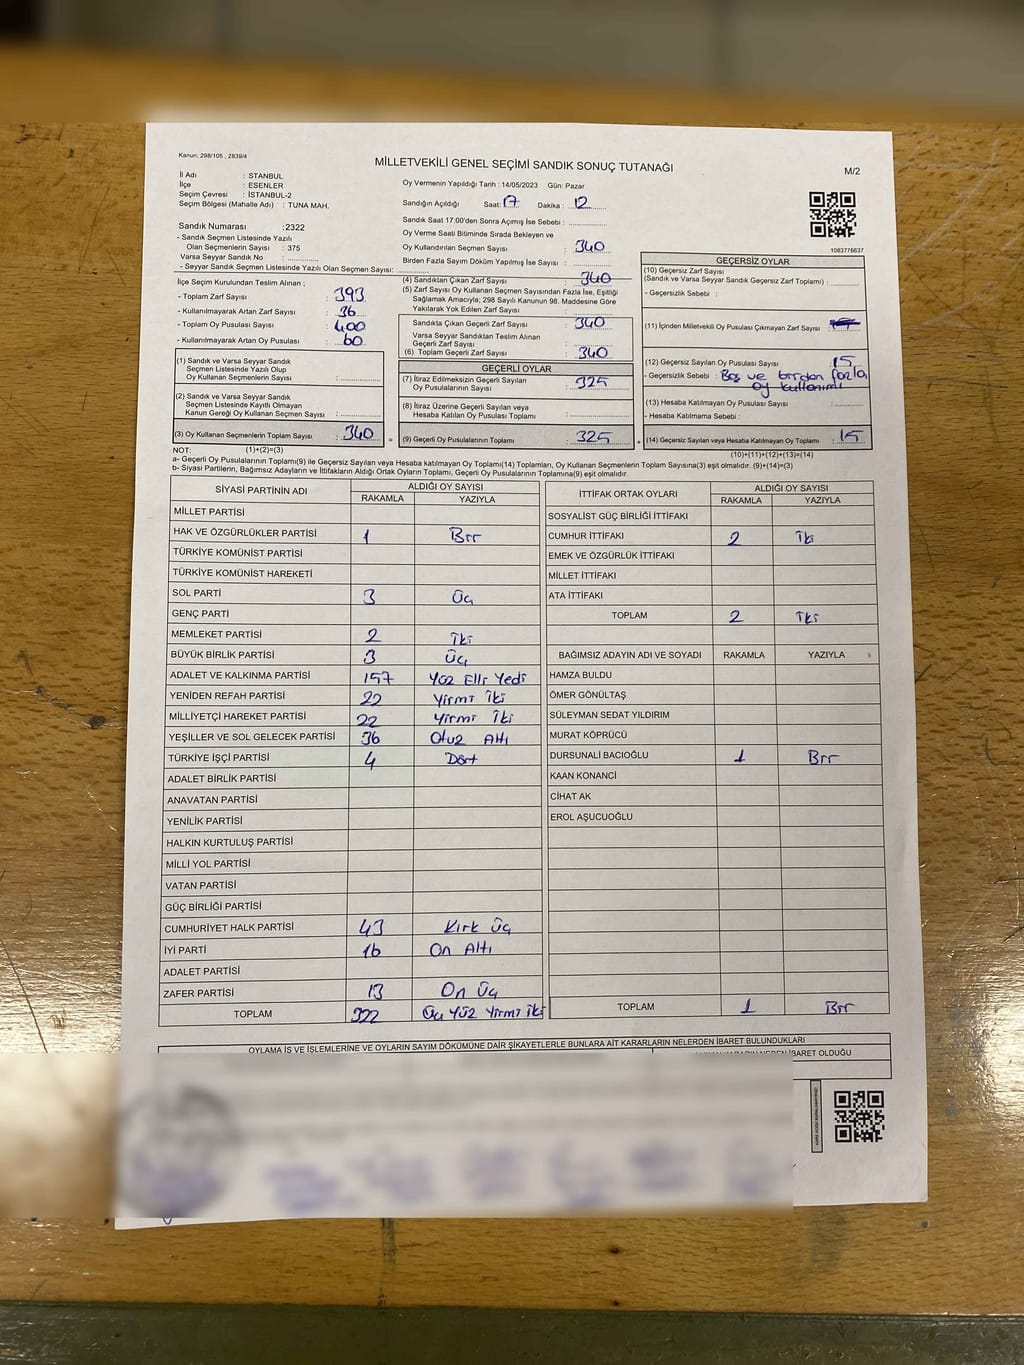 Kanun: 298/105 , 2839/4
MİLLETVEKİLİ GENEL SEÇİMİ SANDIK SONUÇ TUTANAĞI
M/2
İl Adı : STANBUL
İlçe : ESENLER
Seçim Çevresi : İSTANBUL-2
Seçim Bölgesi (Mahalle Adı) : TUNA MAH.
Sandık Numarası :2322
- Sandık Seçmen Listesinde Yazılı
Olan Seçmenlerin Sayısı : 375
Varsa Seyyar Sandık No : ..............
- Seyyar Sandık Seçmen Listesinde Yazılı Olan Seçmen Sayısı: ..............
Oy Vermenin Yapıldığı Tarih : 14/05/2023 Gün: Pazar
Sandığın Açıldığı Saat: 17 Dakika : 12
Sandık Saat 17:00'den Sonra Açımış İse Sebebi : ..............
Oy Verme Saati Bitiminde Sırada Bekleyen ve
Oy Kullandırılan Seçmen Sayısı : 340
Birden Fazla Sayım Döküm Yapılmış İse Sayısı : ..............
1083776637
İlçe Seçim Kurulundan Teslim Alınan ;
- Toplam Zarf Sayısı : 393
- Kullanılmayarak Artan Zarf Sayısı : 36
- Toplam Oy Pusulası Sayısı : 400
- Kullanılmayarak Artan Oy Pusulası : 60
(1) Sandık ve Varsa Seyyar Sandık
Seçmen Listesinde Yazılı Olup
Oy Kullanan Seçmenlerin Sayısı : ..............
(2) Sandık ve Varsa Seyyar Sandık
Seçmen Listesinde Kayıtlı Olmayan
Kanun Gereği Oy Kullanan Seçmen Sayısı : ..............
(3) Oy Kullanan Seçmenlerin Toplam Sayısı : 340
(1)+(2)=(3)
(4) Sandıktan Çıkan Zarf Sayısı : 340
(5) Zarf Sayısı Oy Kullanan Seçmen Sayısından Fazla İse, Eşitliği
Sağlamak Amacıyla; 298 Sayılı Kanunun 98. Maddesine Göre
Yakılarak Yok Edilen Zarf Sayısı : ..............
Sandıkta Çıkan Geçerli Zarf Sayısı : 340
Varsa Seyyar Sandıktan Teslim Alınan
Geçerli Zarf Sayısı : ..............
(6) Toplam Geçerli Zarf Sayısı : 340
GEÇERLİ OYLAR
(7) İtiraz Edilmeksizin Geçerli Sayılan
Oy Pusulalarının Sayısı : 325
(8) İtiraz Üzerine Geçerli Sayılan veya
Hesaba Katılan Oy Pusulası Toplamı : ..............
= (9) Geçerli Oy Pusulalarının Toplamı : 325 +
GEÇERSİZ OYLAR
(10) Geçersiz Zarf Sayısı
(Sandık ve Varsa Seyyar Sandık Geçersiz Zarf Toplamı) : ..............
- Geçersizlik Sebebi :
(11) İçinden Milletvekili Oy Pusulası Çıkmayan Zarf Sayısı :
(12) Geçersiz Sayılan Oy Pusulası Sayısı : 15
- Geçersizlik Sebebi : Boş ve birden fazla
oy kullanımı
(13) Hesaba Katılmayan Oy Pusulası Sayısı : ..............
- Hesaba Katılmama Sebebi :
(14) Geçersiz Sayılan veya Hesaba Katılmayan Oy Toplamı : 15
(10)+(11)+(12)+(13)=(14)
NOT:
a- Geçerli Oy Pusulalarının Toplamı(9) ile Geçersiz Sayılan veya Hesaba katılmayan Oy Toplamı(14) Toplamları, Oy Kullanan Seçmenlerin Toplam Sayısına(3) eşit olmalıdır. (9)+(14)=(3)
b- Siyasi Partilerin, Bağımsız Adayların ve İttifakların Aldığı Ortak Oyların Toplamı, Geçerli Oy Pusulalarının Toplamına(9) eşit olmalıdır.
SİYASİ PARTİNİN ADI ALDIĞI OY SAYISI
RAKAMLA YAZIYLA
MİLLET PARTİSİ
HAK VE ÖZGÜRLÜKLER PARTİSİ 1 Bir
TÜRKİYE KOMÜNİST PARTİSİ
TÜRKİYE KOMÜNİST HAREKETİ
SOL PARTİ 3 Üç
GENÇ PARTİ
MEMLEKET PARTİSİ 2 İki
BÜYÜK BİRLİK PARTİSİ 3 Üç
ADALET VE KALKINMA PARTİSİ 157 Yüz Elli Yedi
YENİDEN REFAH PARTİSİ 22 Yirmi İki
MİLLİYETÇİ HAREKET PARTİSİ 22 Yirmi İki
YEŞİLLER VE SOL GELECEK PARTİSİ 36 Otuz Altı
TÜRKİYE İŞÇİ PARTİSİ 4 Dört
ADALET BİRLİK PARTİSİ
ANAVATAN PARTİSİ
YENİLİK PARTİSİ
HALKIN KURTULUŞ PARTİSİ
MİLLİ YOL PARTİSİ
VATAN PARTİSİ
GÜÇ BİRLİĞİ PARTİSİ
CUMHURİYET HALK PARTİSİ 43 Kırk Üç
İYİ PARTİ 16 On Altı
ADALET PARTİSİ
ZAFER PARTİSİ 13 On Üç
TOPLAM 322 Üç Yüz Yirmi İki
İTTİFAK ORTAK OYLARI ALDIĞI OY SAYISI
RAKAMLA YAZIYLA
SOSYALİST GÜÇ BİRLİĞİ İTTİFAKI
CUMHUR İTTİFAKI 2 İki
EMEK VE ÖZGÜRLÜK İTTİFAKI
MİLLET İTTİFAKI
ATA İTTİFAKI
TOPLAM 2 İki
BAĞIMSIZ ADAYIN ADI VE SOYADI RAKAMLA YAZIYLA
HAMZA BULDU
ÖMER GÖNÜLTAŞ
SÜLEYMAN SEDAT YILDIRIM
MURAT KÖPRÜCÜ
DURSUNALİ BACIOĞLU 1 Bir
KAAN KONANCİ
CİHAT AK
EROL AŞUCUOĞLU
TOPLAM 1 Bir
OYLAMA İŞ VE İŞLEMLERİNE VE OYLARIN SAYIM DÖKÜMÜNE DAİR ŞİKAYETLERLE BUNLARA AİT KARARLARIN NELERDEN İBARET BULUNDUKLARI
İBARET OLDUĞU